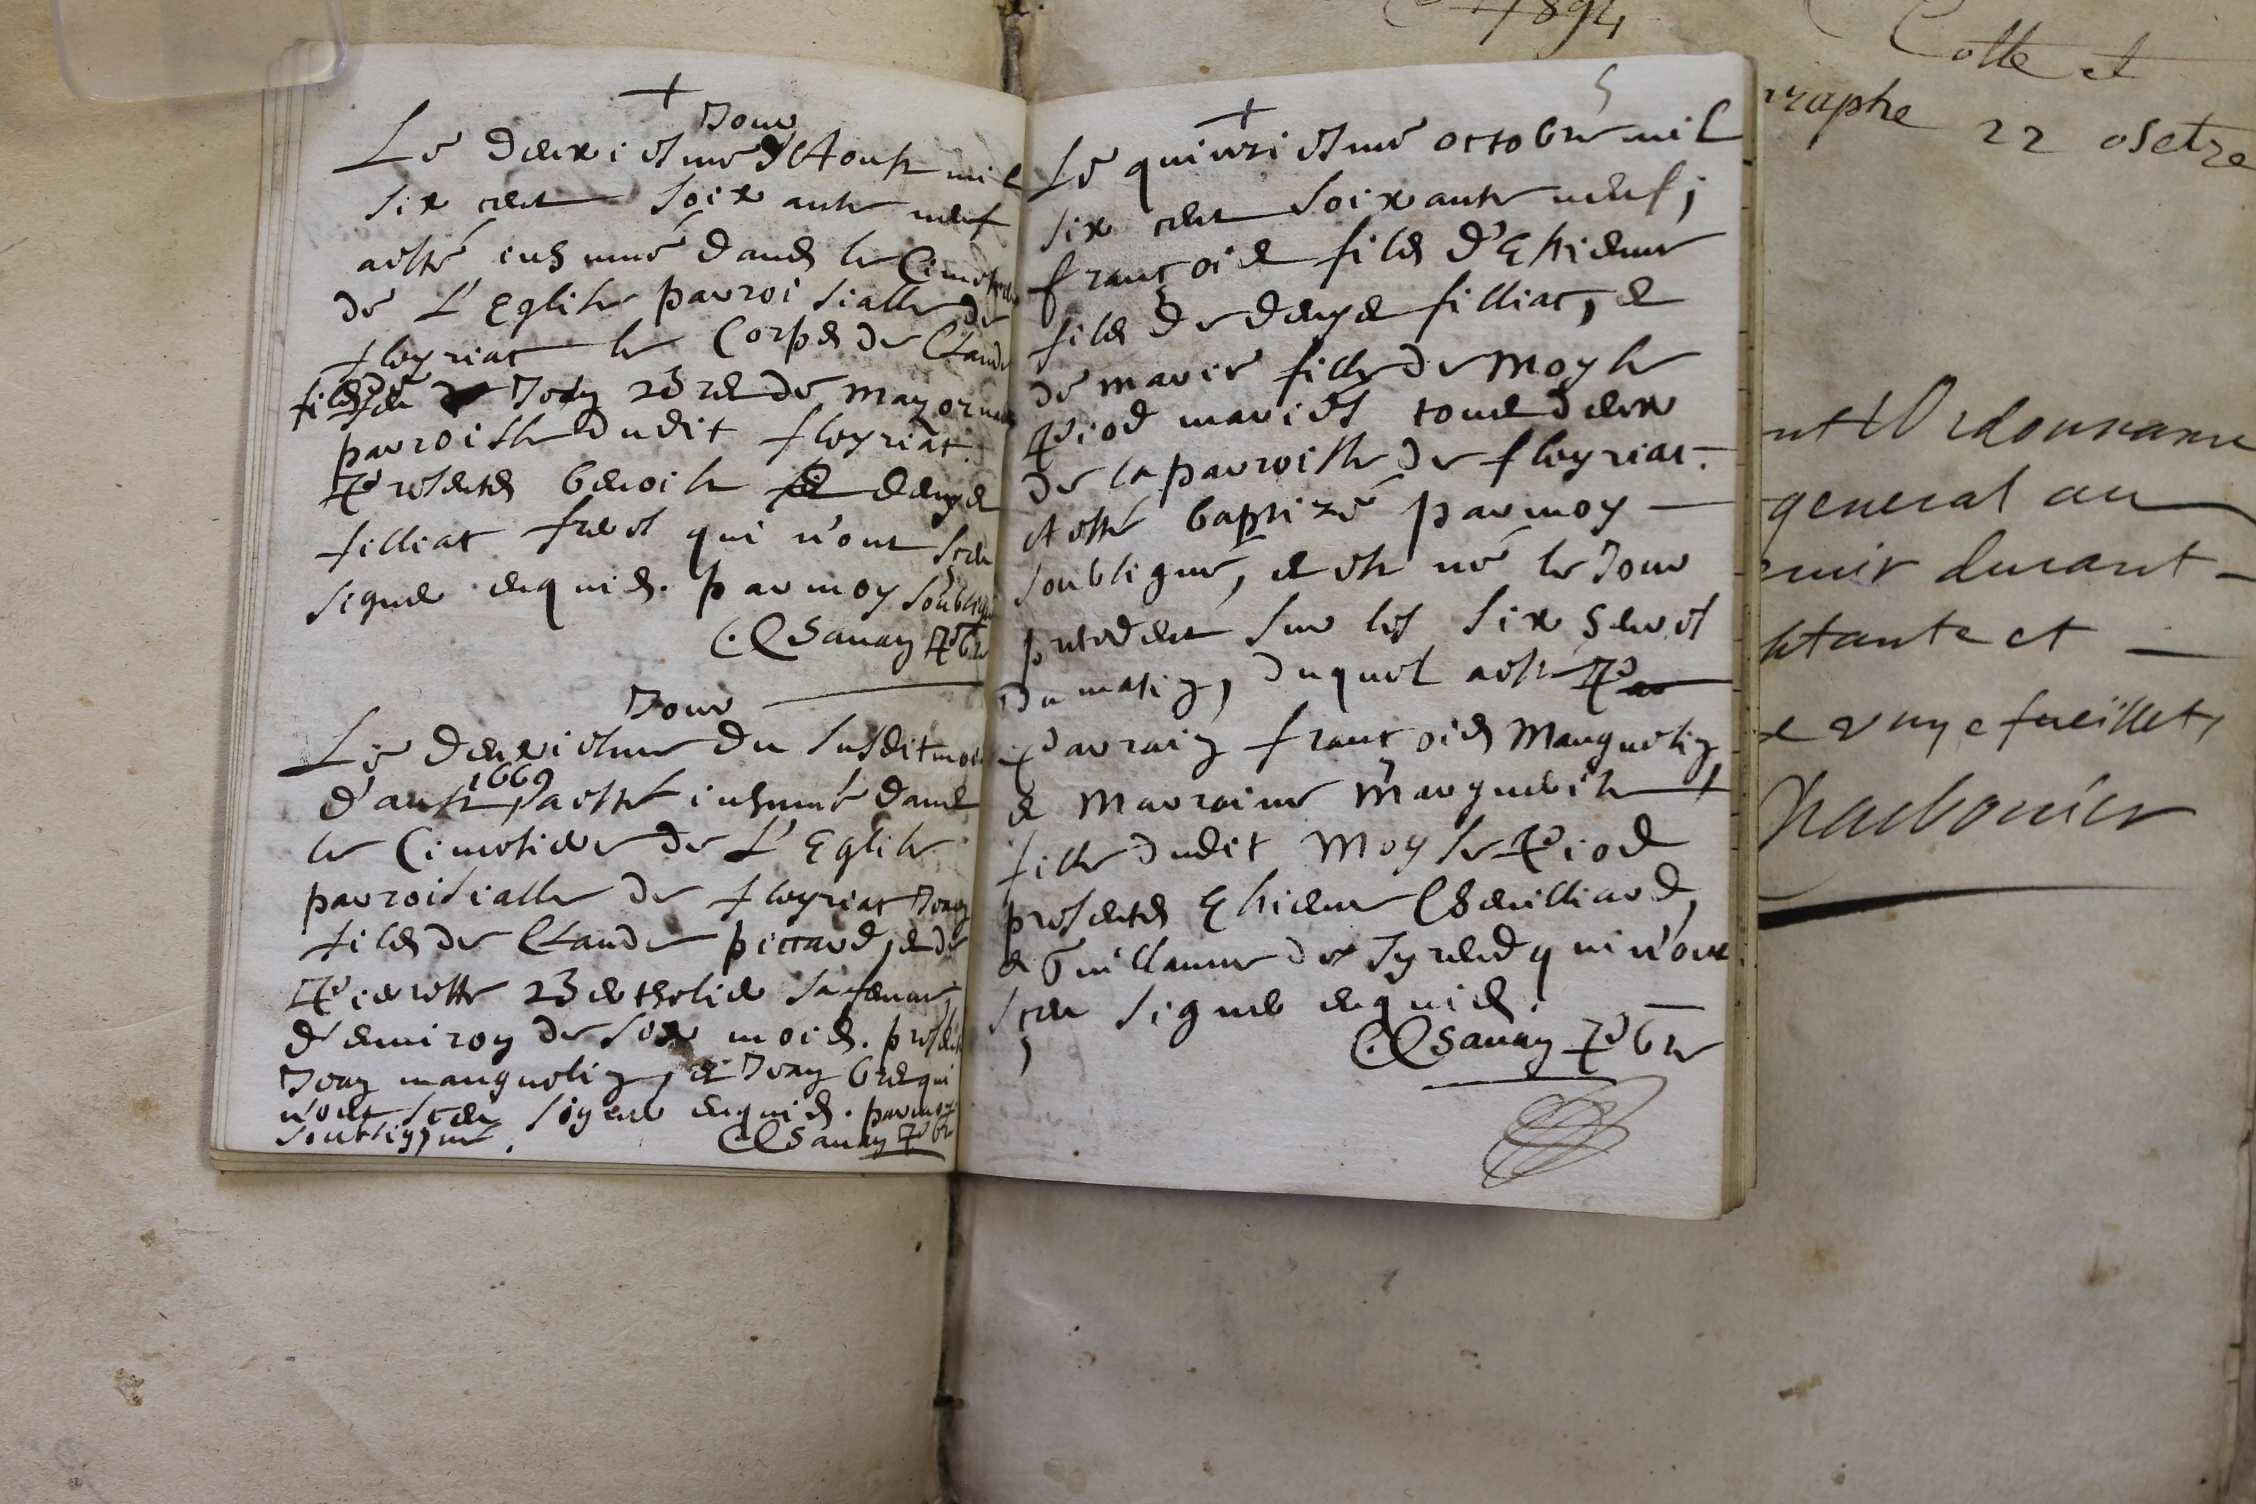 +
Jour
Le deuxiesme d'Aoust mil
six cent soixante neuf
aesté inhumé dans le Cimetiere
de L'Eglise parroissialle de
fleyriat le Corps de Claude
fils de feu Jean de
parroisse dudit fleyriat.
Presents benoist et denys
filliat freres qui n'ont sceu
signer enquis. par moy soubsigné
Pbre
Jour
Le deuxiesme du susdit mois
d'aoust 1669, aesté inhumé dans
le Cimetiere de L'Eglise
parroissialle de fleyriat Jean
fils de Claude piccard, et de
Pierrette Bertholier sa femme,
d'environ de six mois. presents
Jean manguelin, et Jean qui
n'ont sceu signer enquis. par moy
soubsigné.
Pbre
5
+
Le quinziesme octobre mil
six cent soixante neuf,
françois fils d'Estienne
fils de denys filliat, et
de marie fille de Moyse
Piod mariés tous deux
de la parroisse de fleyriat.
A esté baptizé par moy
soubsigné, et est né le Jour
precedent sur les six heures
du matin, duquel a esté
Parrain françois Manguelin
et Marraine Marguerite
fille dudit Moyse Piod
presents Estienne Chevilliard,
et Guillaume de qui n'ont
sceu signer enquis.
Pbre
1894
Cotte et
paraphe 22 
Ordonnance
general au
durant
et
fueillets
Charbonier